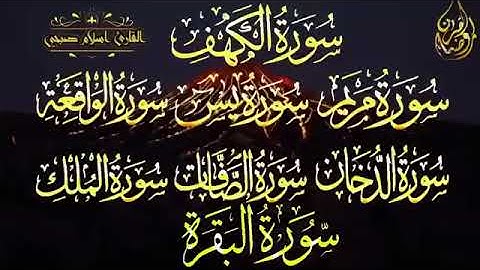 القارئ اسلام صبحي
سُورَةُ الكَهْفِ
سُورَةُ مَرْيَم سُورَةُ يس سُورَةُ الْوَاقِعَةِ
سُورَةُ الدُّخَانِ سُورَةُ الصَّافَّاتِ سُورَةُ المُلْكِ
سُورَةُ البَقَرَةِ